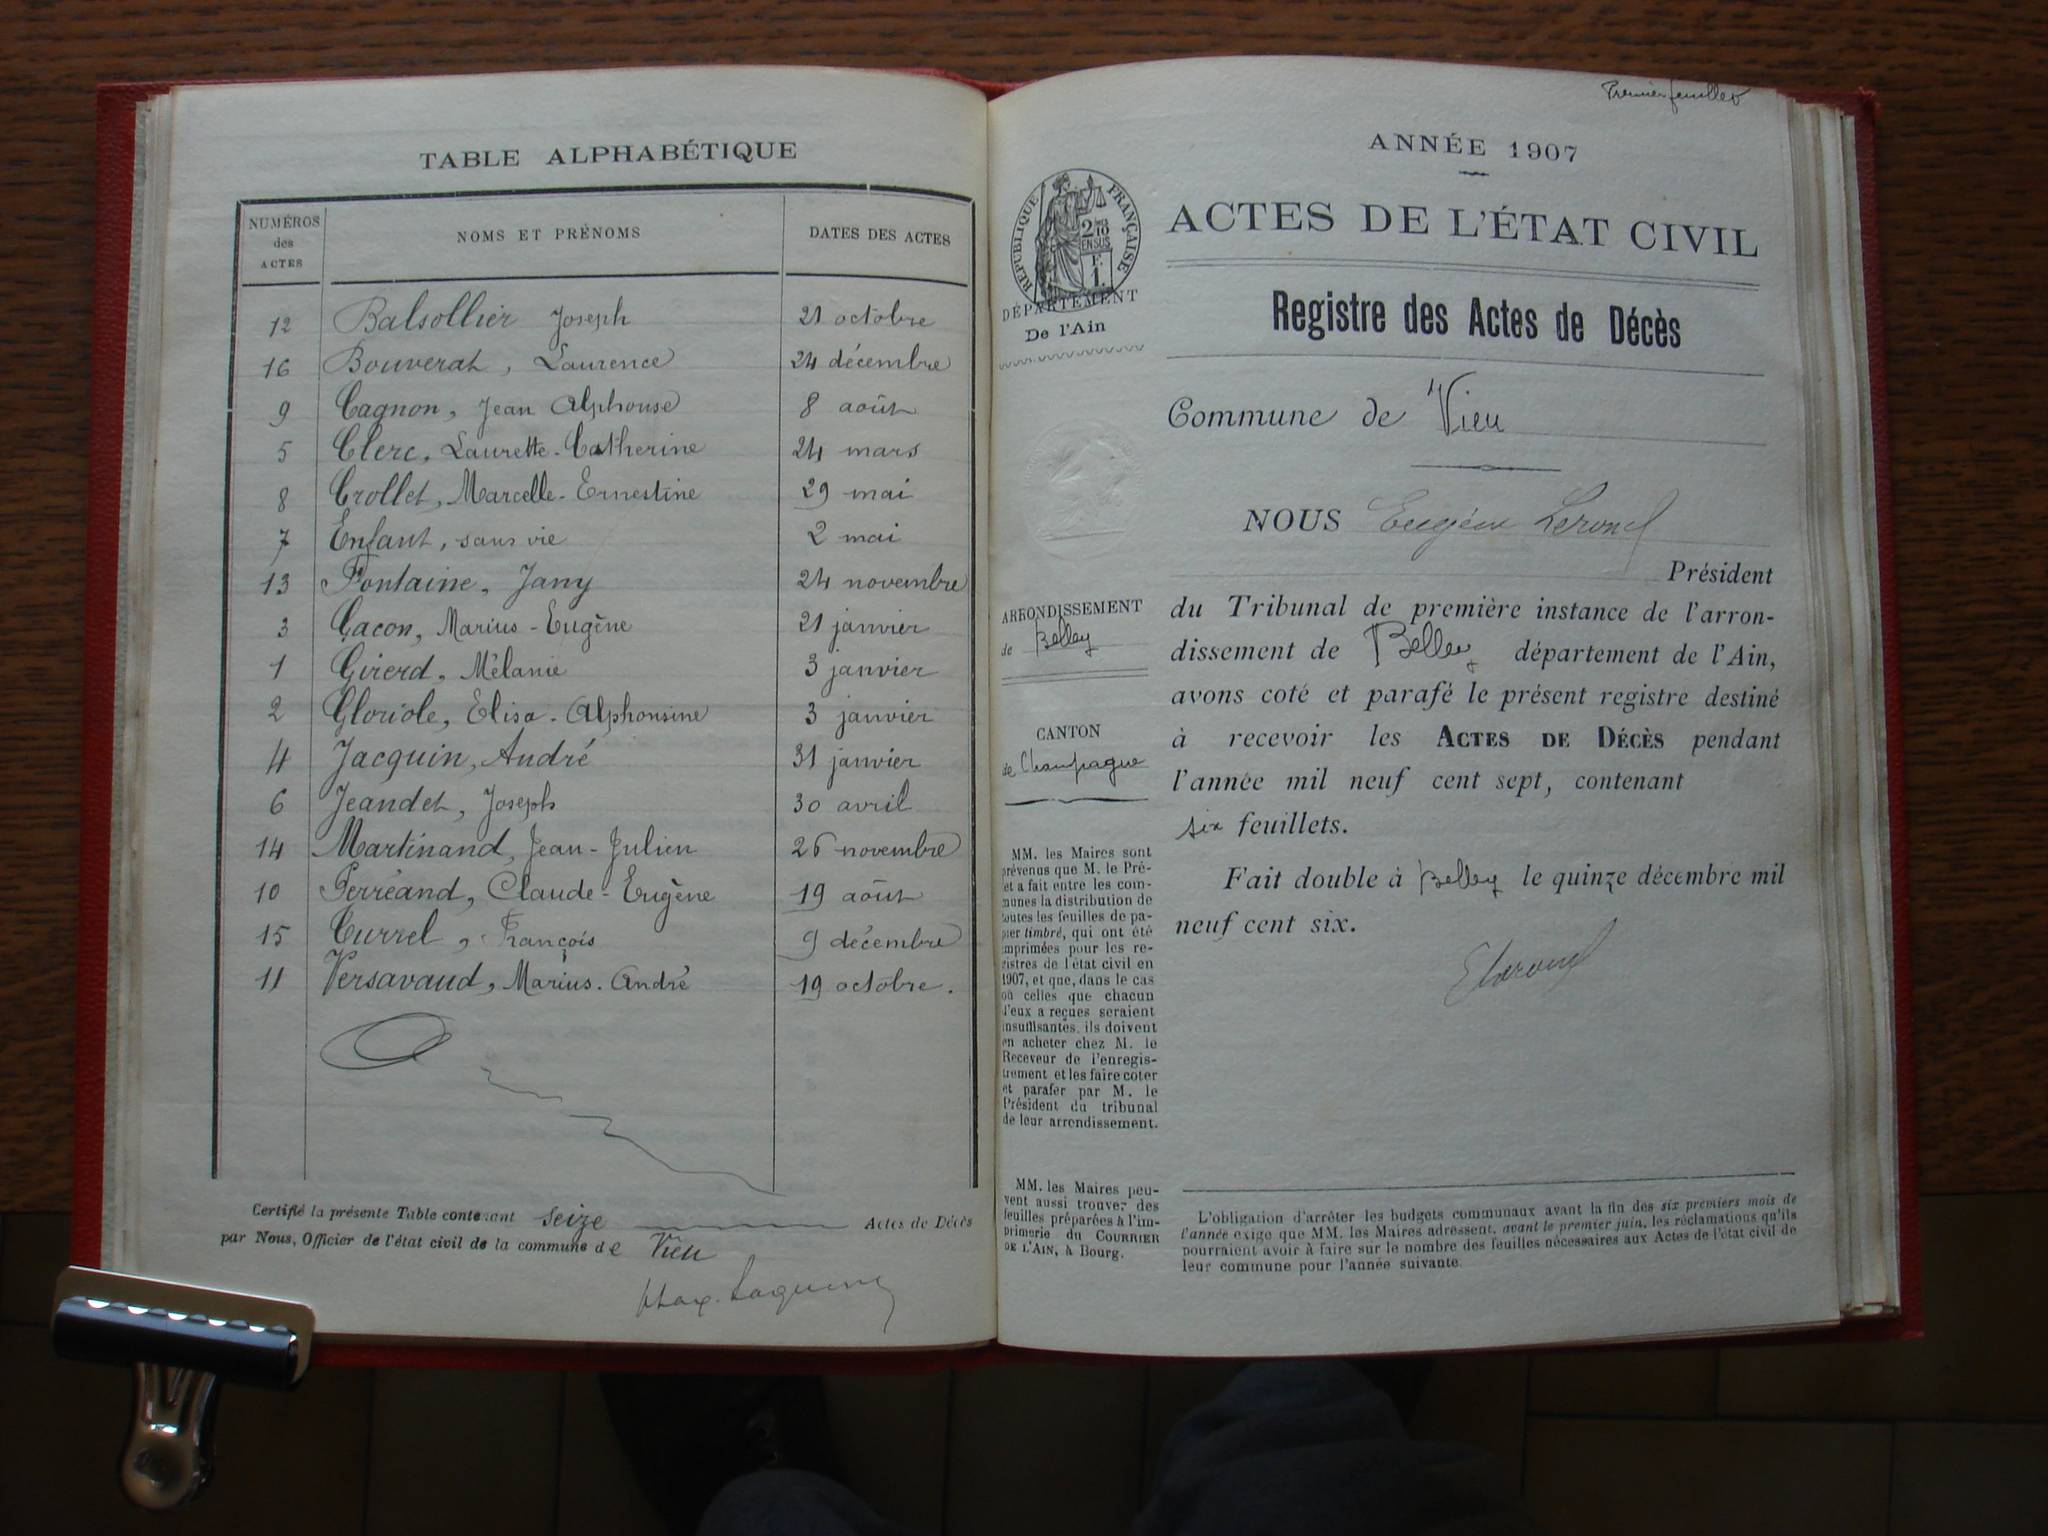 TABLE ALPHABÉTIQUE
NUMÉROS des ACTES NOMS ET PRÉNOMS DATES DES ACTES
12 Balsollier Joseph 21 octobre
16 Bouverat, Laurence 24 décembre
9 Cagnon, Jean Alphonse 8 août
5 Clerc, Laurette-Catherine 24 mars
8 Crollet, Marcelle-Ernestine 29 mai
7 Enfant, sans vie 2 mai
13 Fontaine, Jany 24 novembre
3 Gacon, Marius-Eugène 21 janvier
1 Girerd, Mélanie 3 janvier
2 Gloriole, Elisa-Alphonsine 3 janvier
4 Jacquin, André 31 janvier
6 Jeandet, Joseph 30 avril
14 Martinand, Jean-Julien 26 novembre
10 Perréand, Claude-Eugène 19 août
15 Turrel, François 9 décembre
11 Versavaud, Marius-André 19 octobre.
Certifié la présente Table contenant seize Actes de Décès
par Nous, Officier de l'état civil de la commune de Vieu
Premier feuillet
ANNÉE 1907
ACTES DE L'ÉTAT CIVIL
RÉPUBLIQUE FRANÇAISE
2/10 EN SUS
F. 1.
DÉPARTEMENT
De l'Ain
Registre des Actes de Décès
Commune de Vieu
NOUS Eugène
Président
du Tribunal de première instance de l'arron-
dissement de Belley département de l'Ain,
avons coté et parafé le présent registre destiné
à recevoir les ACTES DE DÉCÈS pendant
l'année mil neuf cent sept, contenant
six feuillets.
Fait double à Belley le quinze décembre mil
neuf cent six.
ARRONDISSEMENT
de Belley
CANTON
de Champagne
MM. les Maires sont
prévenus que M. le Pré-
fet a fait entre les com-
munes la distribution de
toutes les feuilles de pa-
pier timbré, qui ont été
imprimées pour les re-
gistres de l'état civil en
1907, et que, dans le cas
où celles que chacun
d'eux a reçues seraient
insuffisantes, ils doivent
en acheter chez M. le
Receveur de l'enregis-
trement et les faire coter
et parafer par M. le
Président du tribunal
de leur arrondissement.
MM. les Maires peu-
vent aussi trouver des
feuilles préparées à l'im-
primerie du COURRIER
DE L'AIN, à Bourg.
L'obligation d'arrêter les budgets communaux avant la fin des six premiers mois de
l'année exige que MM. les Maires adressent, avant le premier juin, les réclamations qu'ils
pourraient avoir à faire sur le nombre des feuilles nécessaires aux Actes de l'état civil de
leur commune pour l'année suivante.